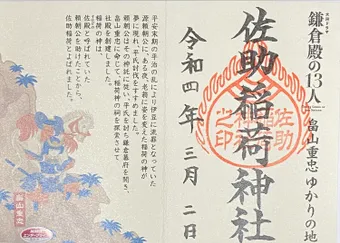 大河ドラマ
鎌倉殿の13人
畠山重忠 ゆかりの地
佐助稲荷神社
令和四年三月二日
佐助
稲荷
之印
平安末期の平治の乱により伊豆に流罪となっていた
源頼朝公に、ある夜、老翁に姿を変えた稲荷の神が
夢に現れ、平氏討伐をすすめました。
頼朝公はその神託に従い、平氏を討ち鎌倉幕府を開き、
畠山重忠に命じて、稲荷神の祠を探索させて
社殿を創建しました。
稲荷の神は、
佐殿と呼ばれていた
頼朝公を助けたことから、
佐助稲荷とよばれました。
畠山重忠